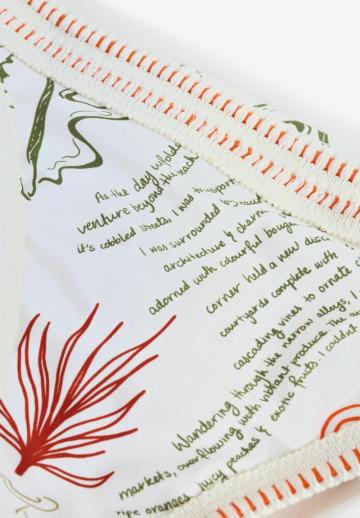 As the day unfolde
venture beyond the
it's cobbled streets I was
I was surrounded by
architecture & charm
adorned with colourful boug
corner held a new disc
courtyards complete with
cascading vines to ornate
Wandering through the narrow alleys,
markets, overflowing with vibrant produce. The
oranges, juicy peaches & exotic fruits, I could